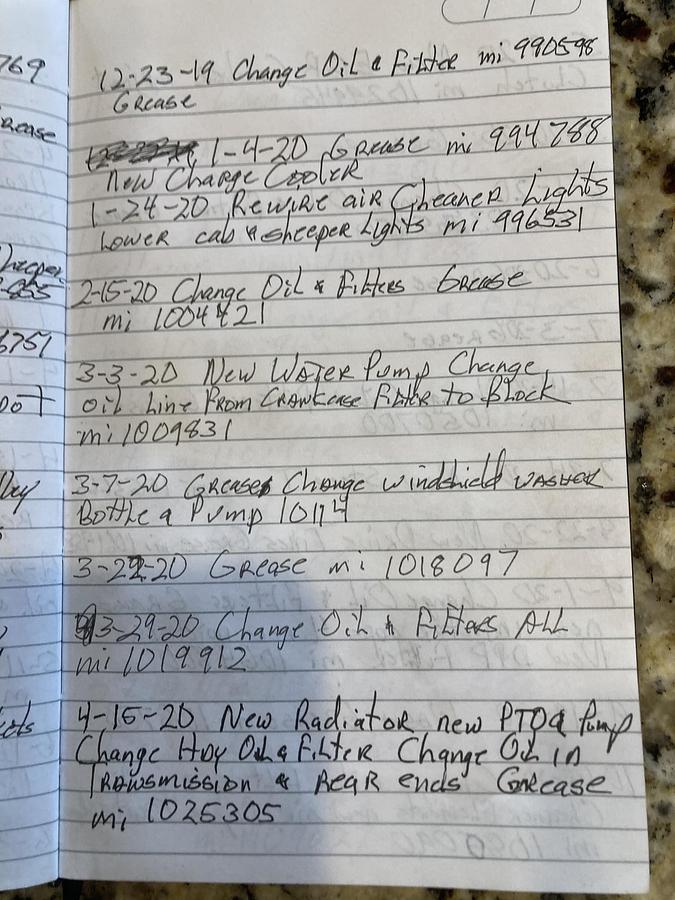 769
12-23-19 Change Oil & Filter mi 990598
Grease
rease
1-4-20 Grease mi 994788
New Charge Cooler
1-24-20 Rewire air Cleaner Lights
Lower cab & sleeper Lights mi 996531
2-15-20 Change Oil & Filters Grease
mi 1004421
6751
3-3-20 New Water Pump Change
Oil Line From Crankcase Filter to Block
mi 1009831
3-7-20 Grease Change windshield washer
Bottle & Pump
3-22-20 Grease mi 1018097
3-29-20 Change Oil & Filters ALL
mi 1019912
4-15-20 New Radiator new PTO & Pump
Change Hdy Oil & Filter Change Oil in
Transmission & Rear ends Grease
mi 1025305